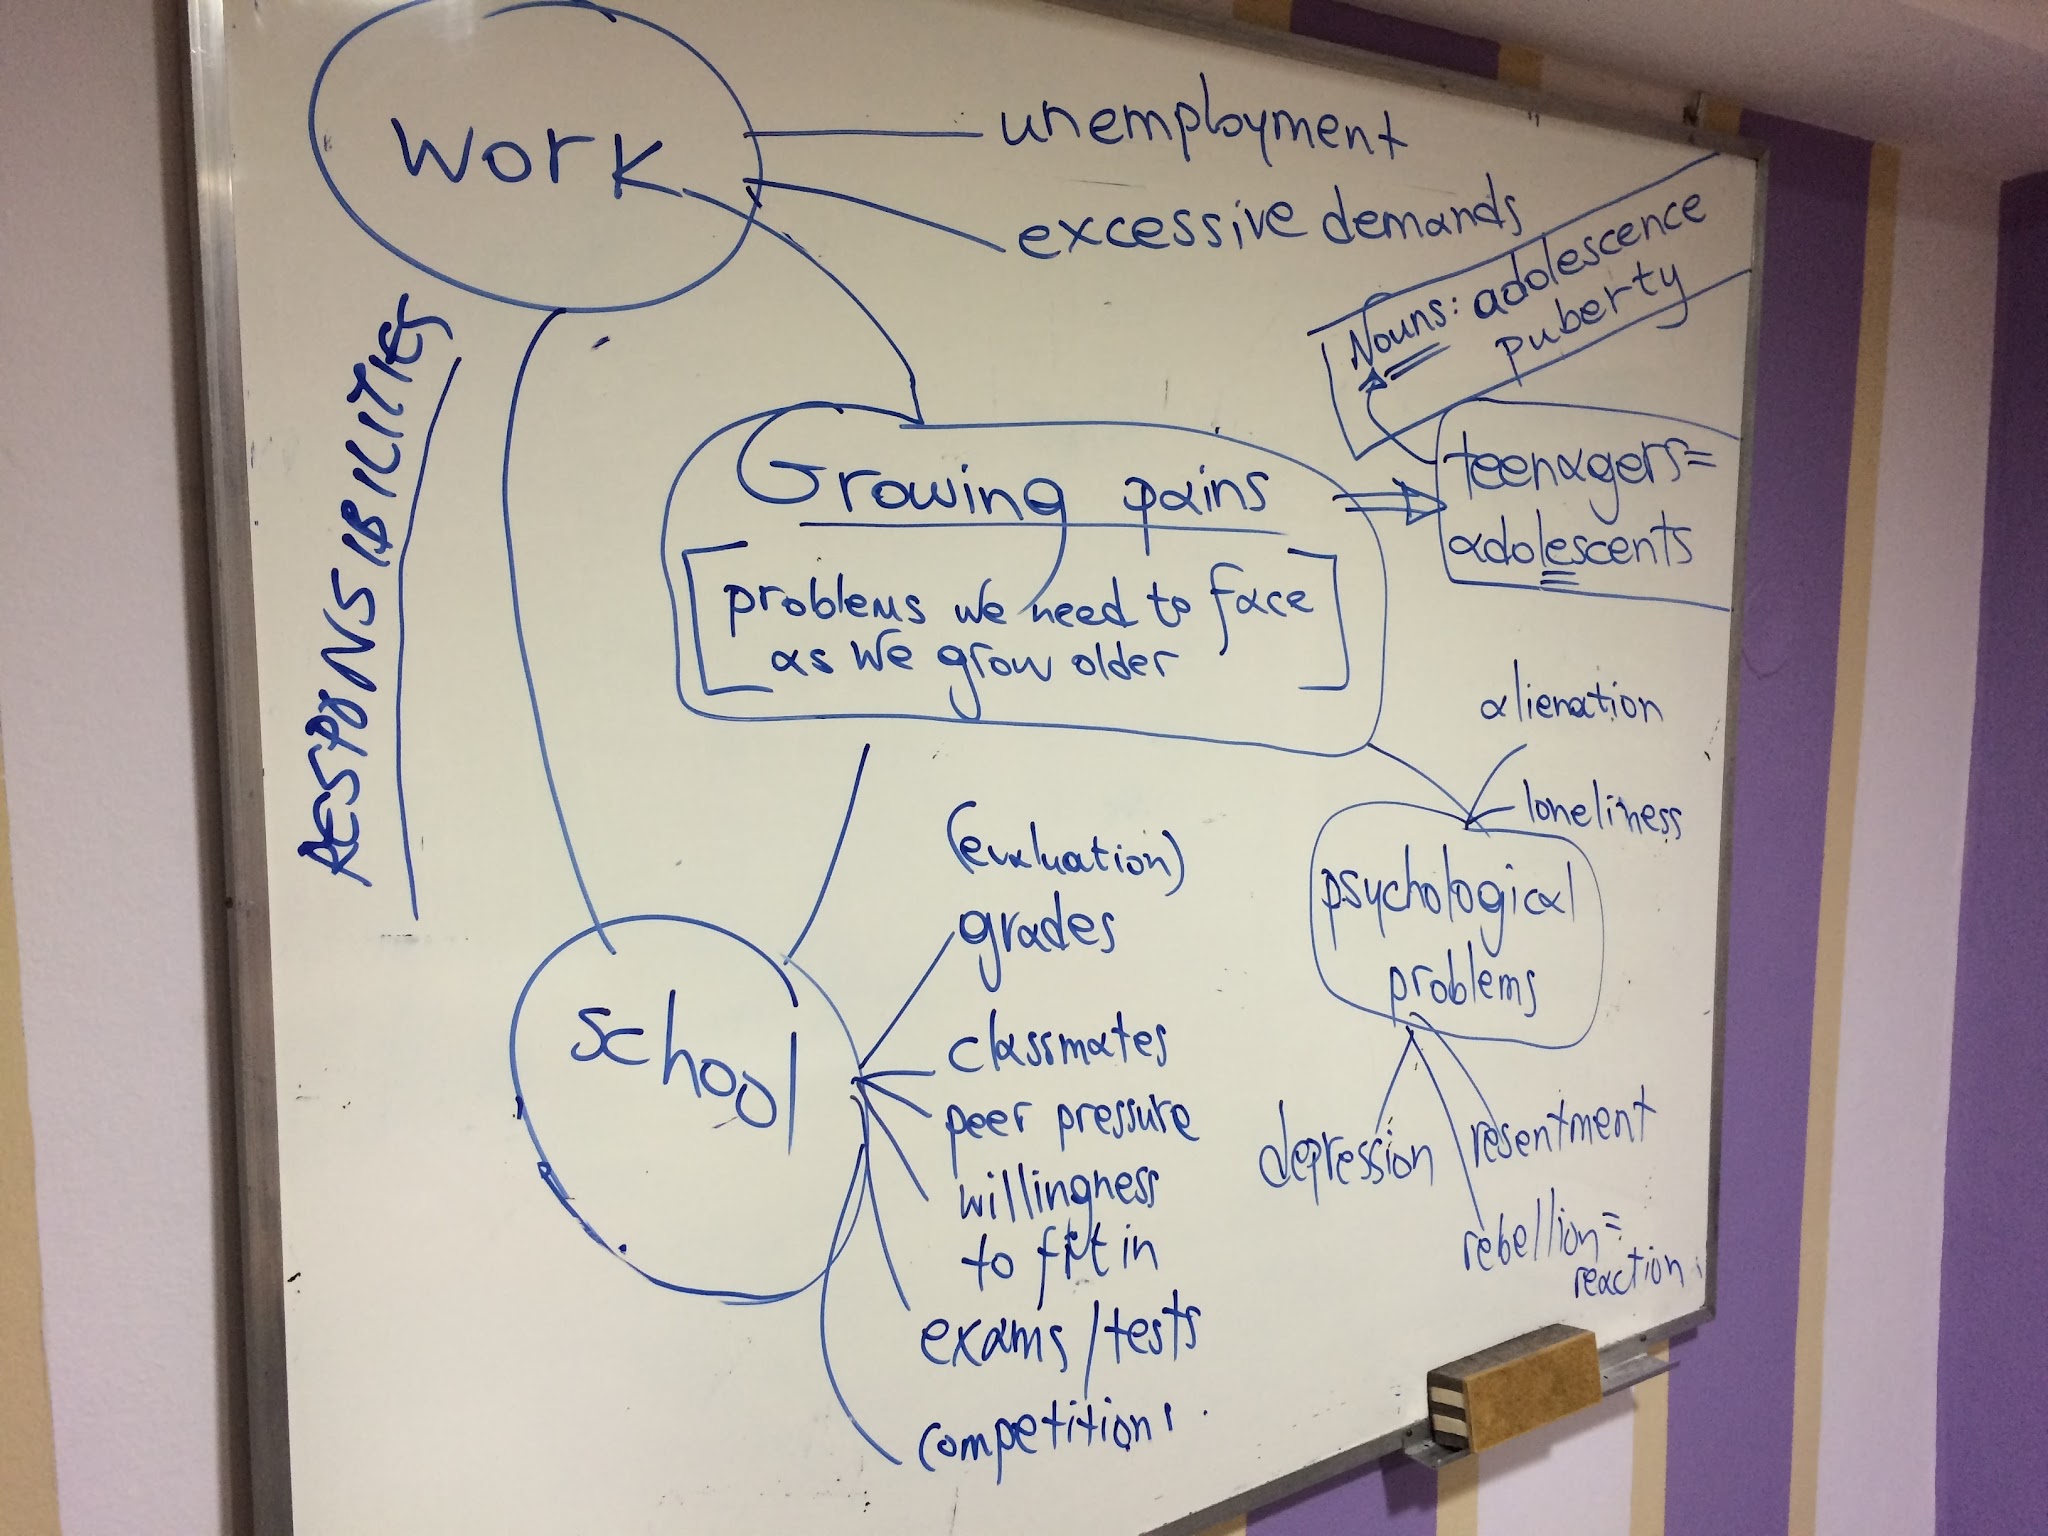 work
unemployment
excessive demands
Nouns: adolescence
puberty
RESPONSIBILITIES
Growing pains
[problems we need to face
as we grow older]
teenagers=
adolescents
alienation
loneliness
psychological
problems
depression
resentment
rebellion=
reaction
school
(evaluation)
grades
classmates
peer pressure
willingness
to fit in
exams/tests
competition